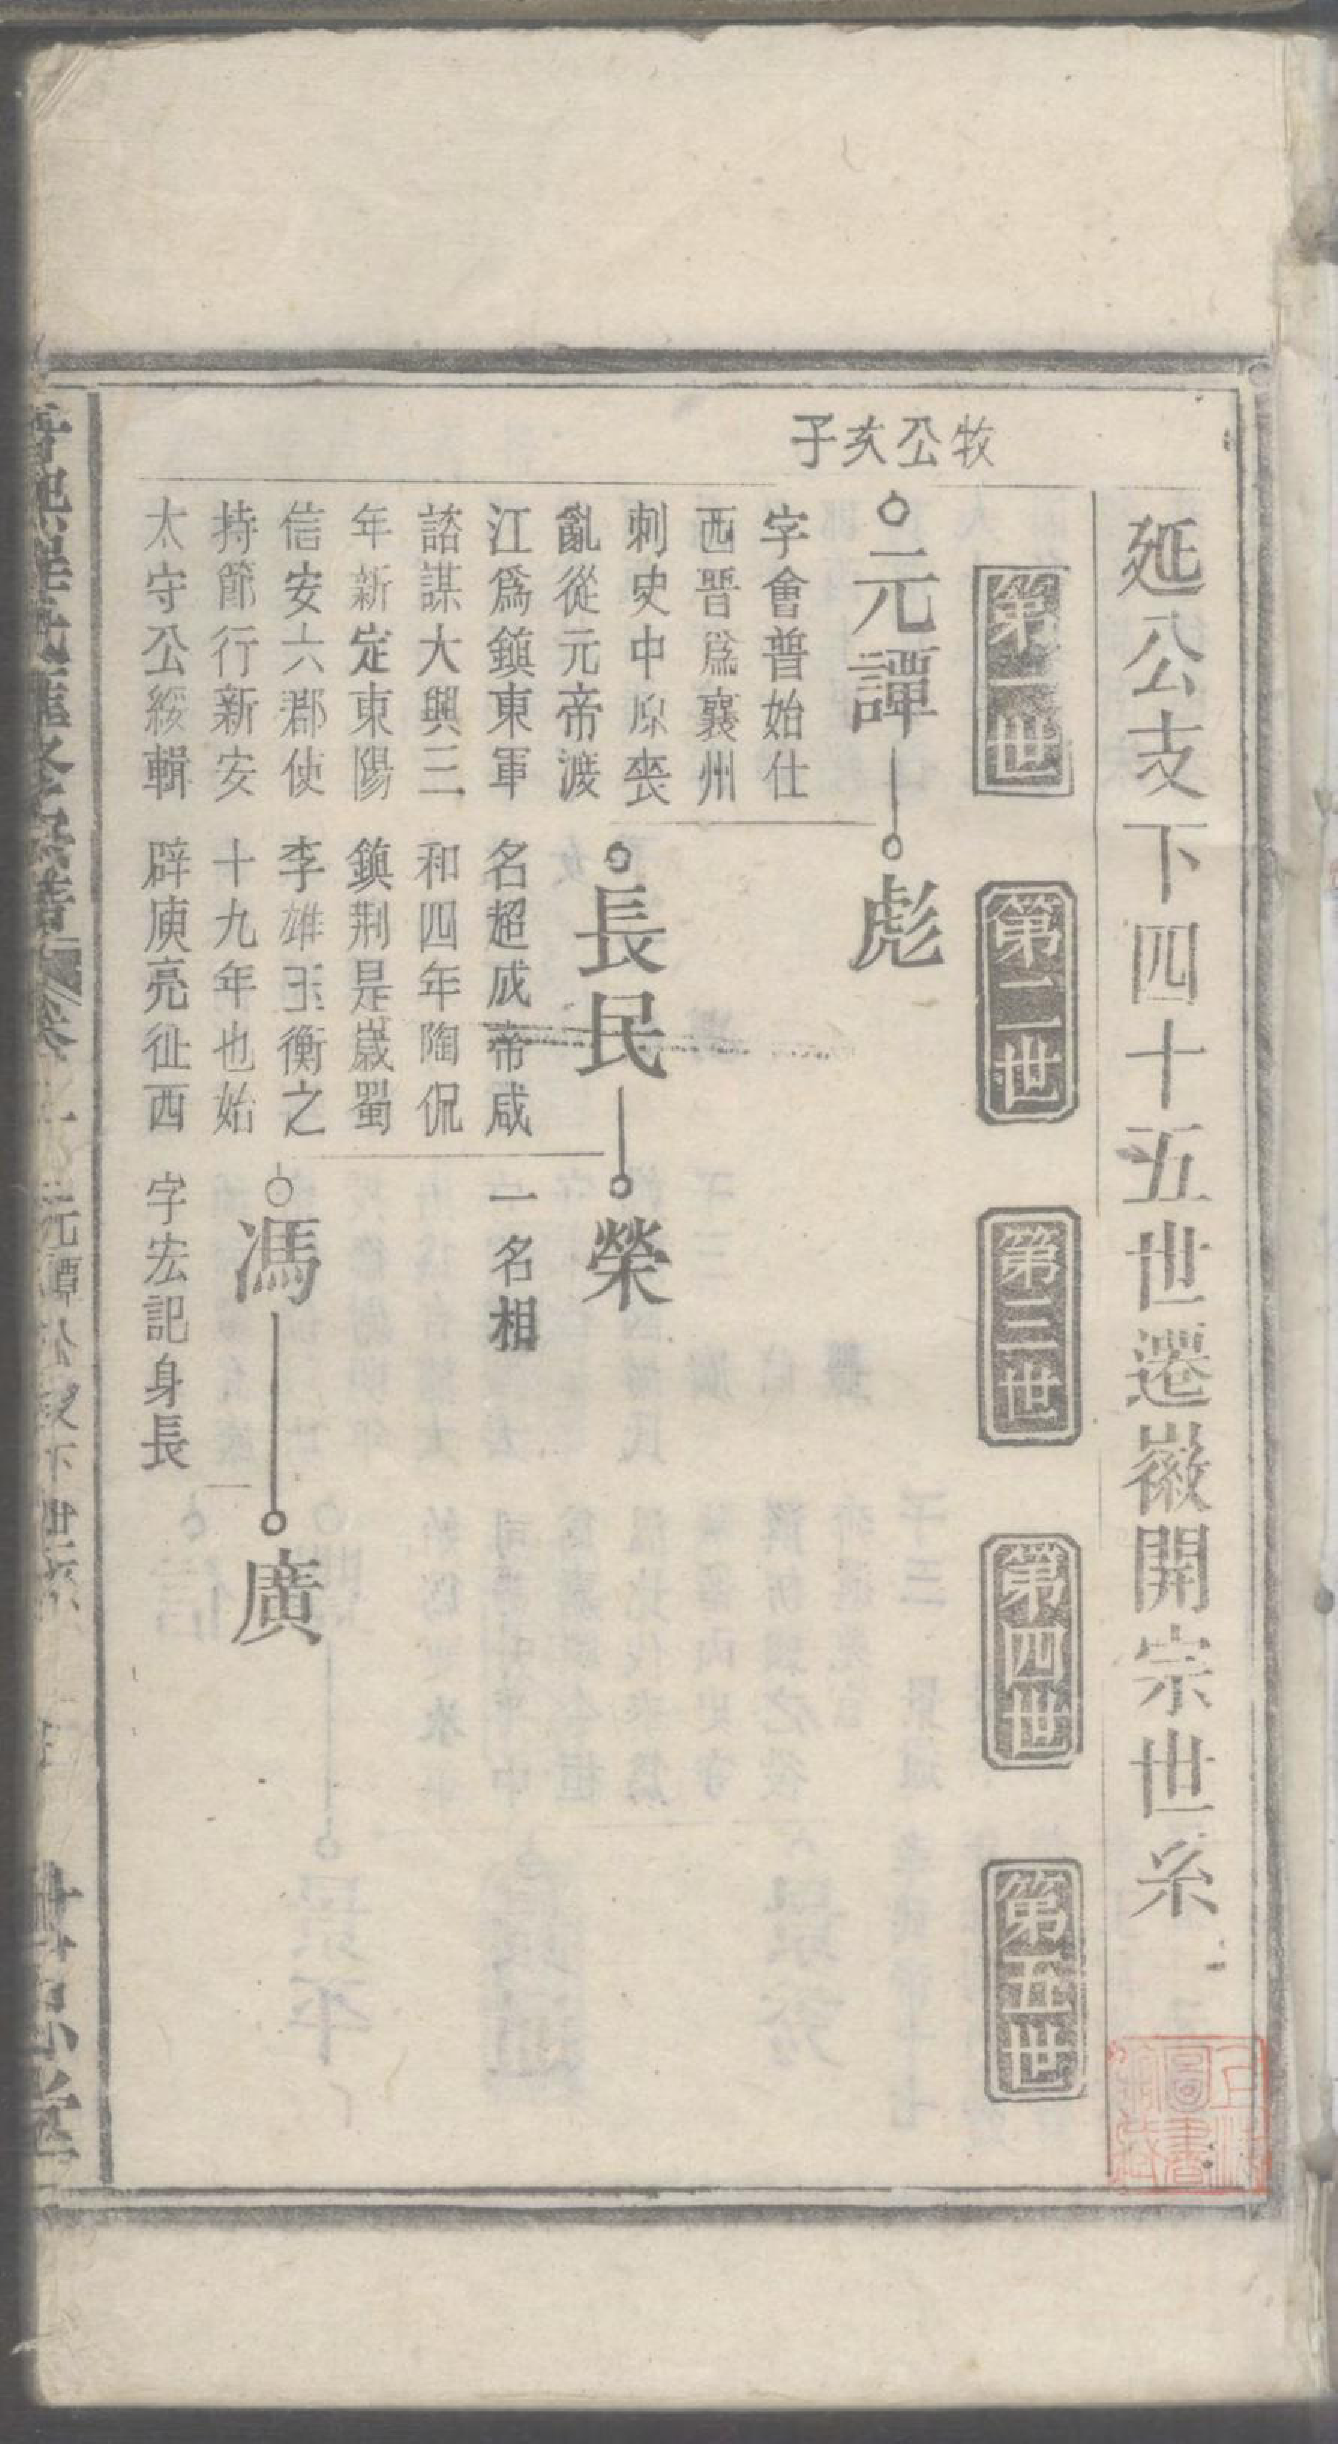 延公支下四十五世遷徽開宗世系
第一世
第二世
第三世
第四世
第五世
牧公亥子
元譚
彪
字會普始仕
西晉為襄州
刺史中原丧
亂從元帝渡
江爲鎮東軍
諮謀大興三
年新定東陽
信安六郡使
持節行新安
太守公綏輯
長民
榮
名超成帝咸
和四年陶侃
鎮荆是嵗蜀
李雄玉衡之
十九年也始
辟庾亮征西
一名相
馮
廣
字宏記身長